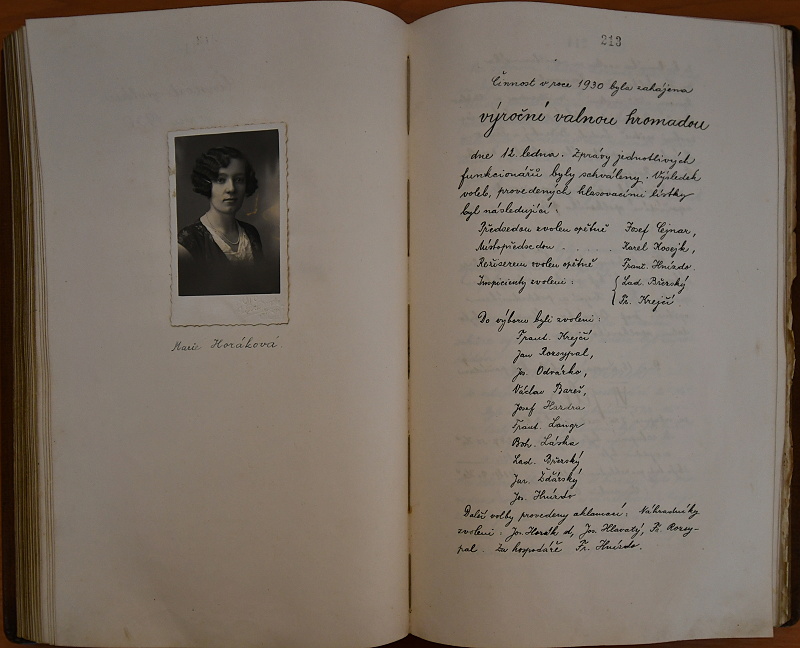 Marie Horáková.
213
Činnost v roce 1930 byla zahájena
výroční valnou hromadou
dne 12. ledna. Zprávy jednotlivých
funkcionářů byly schváleny. Výsledek
voleb, provedených hlasovacími lístky
byl následující:
Předsedou zvolen opětně Josef Cejnar,
Místopředsedou . . . . . Karel Kosejk,
Režiserem zvolen opětně Frant. Hnízdo.
Inspicienty zvoleni: Lad. Břerský
Fr. Krejčí
Do výboru byli zvoleni:
Frant. Krejčí
Jan Rozsypal,
Jos. Odvárko,
Václav Bareš,
Josef
Frant. Langr
Boh. Láska
Lad. Břerský
Jar. Žďárský
Jos. Hnízdo
Další volby provedeny aklamací: Náhradníky
zvoleni: Jos. Horák d, Jos. Hlavatý, Fr. Rozsy-
pal. Za hospodáře Fr. Hnízdo.